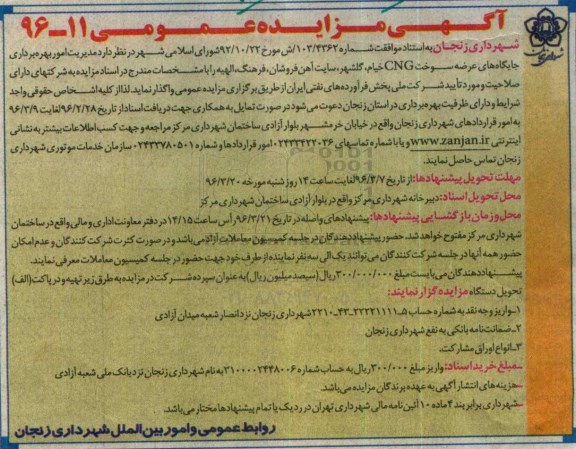 آگهی مزایده عمومی ۱۱-۹۶
شهرداری زنجان به استناد موافقت شماره ۱۰۳/۴۳۶۲/ش مورخ ۹۲/۱۰/۲۲ شورای اسلامی شهر در نظر دارد مدیریت امور بهره برداری
جایگاه های عرضه سوخت CNG خیام، گلشهر، سایت آهن فروشان، فرهنگ، الهیه را با مشخصات مندرج در اسناد مزایده به شرکتهای دارای
صلاحیت و مورد تأیید شرکت ملی پخش فرآورده های نفتی ایران از طریق برگزاری مزایده عمومی واگذار نماید. لذا از کلیه اشخاص حقوقی واجد
شرایط و دارای ظرفیت بهره برداری در استان زنجان دعوت می شود در صورت تمایل به همکاری جهت دریافت اسناد از تاریخ ۹۶/۲/۲۸ لغایت ۹۶/۳/۹
به امور قراردادهای شهرداری زنجان واقع در خیابان خرمشهر بلوار آزادی ساختمان شهرداری مرکز مراجعه و جهت کسب اطلاعات بیشتر به نشانی
اینترنتی www.zanjan.ir و یا با شماره تماسهای ۰۲۴۳۳۴۲۲۰۳۶ امور قراردادها و شماره ۰۲۴۳۳۷۸۰۵۰۱ سازمان خدمات موتوری شهرداری
زنجان تماس حاصل نمایند.
مهلت تحویل پیشنهادها: از تاریخ ۹۶/۳/۷ لغایت ساعت ۱۴ روز شنبه مورخه ۹۶/۳/۲۰
محل تحویل اسناد: دبیرخانه شهرداری مرکز واقع در بلوار آزادی ساختمان شهرداری مرکز
محل و زمان بازگشایی پیشنهادها: پیشنهادهای واصله در تاریخ ۹۶/۳/۲۱ رأس ساعت ۱۴/۱۵ در دفتر معاونت اداری و مالی واقع در ساختمان
شهرداری مرکز مفتوح خواهد شد. حضور پیشنهاددهندگان در جلسه کمیسیون معاملات آزاد می باشد و در صورت کثرت شرکت کنندگان و عدم امکان
حضور همه آنها در جلسه شرکت کنندگان می توانند یک الی سه نفر نماینده از طرف خود جهت حضور در جلسه کمیسیون معاملات معرفی نمایند.
پیشنهاددهندگان می بایست مبلغ ۳۰۰/۰۰۰/۰۰۰ ریال (سیصد میلیون ریال) به عنوان سپرده شرکت در مزایده به طرق زیر تهیه و در پاکت (الف)
تحویل دستگاه مزایده گزار نمایند:
۱- واریز وجه نقد به شماره حساب ۵-۲۲۲۲۱۱۱۱-۴۳-۲۲۱۰ شهرداری زنجان نزد انصار شعبه میدان آزادی
۲- ضمانت نامه بانکی به نفع شهرداری زنجان
۳- انواع اوراق مشارکت.
-مبلغ خرید اسناد: واریز مبلغ ۳۰۰/۰۰۰ ریال به حساب شماره ۳۱۰۰۰۰۲۴۴۸۰۰۶ به نام شهرداری زنجان نزد بانک ملی شعبه آزادی
-هزینه های انتشار آگهی به عهده برندگان مزایده می باشد.
-شهرداری برابر بند ۴ ماده ۱۰ آئین نامه مالی شهرداری تهران در رد یک یا تمام پیشنهادها مختار می باشد.
روابط عمومی و امور بین الملل شهرداری زنجان